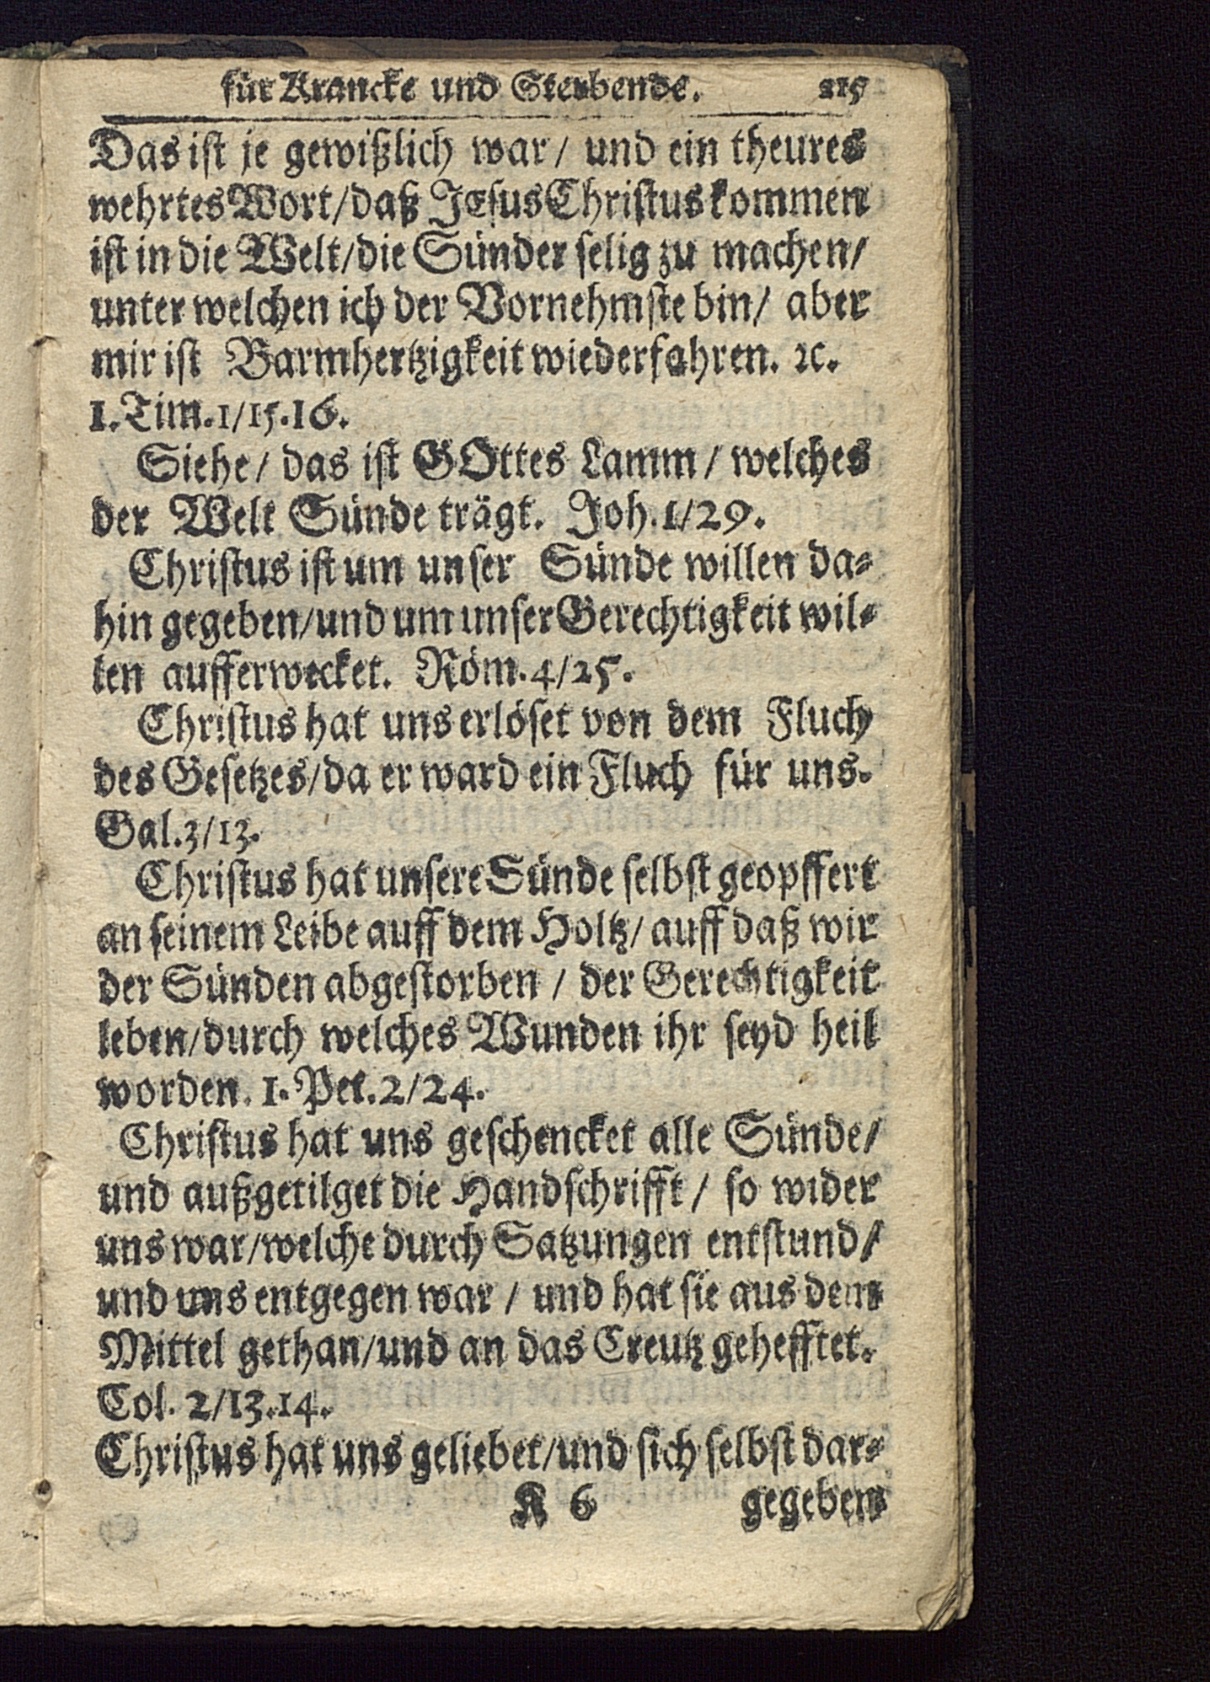 für Krancke und Sterbende. 215
Das ist je gewißlich war / und ein theures
wehrtes Wort / daß JEsus Christus kommen
ist in die Welt / die Sünder selig zu machen /
unter welchen ich der Vornehmste bin / aber
mir ist Barmhertzigkeit wiederfahren. ꝛc.
1. Tim. 1/15.16.
Siehe / das ist GOttes Lamm / welches
der Welt Sünde trägt. Joh. 1/29.
Christus ist um unser Sünde willen da⸗
hin gegeben / und um unser Gerechtigkeit wil⸗
len aufferwecket. Röm. 4/25.
Christus hat uns erlöset von dem Fluch
des Gesetzes / da er ward ein Fluch für uns.
Gal. 3/13.
Christus hat unsere Sünde selbst geopffert
an seinem Leibe auff dem Holtz / auff daß wir
der Sünden abgestorben / der Gerechtigkeit
leben / durch welches Wunden ihr seyd heil
worden. 1. Pet. 2/24.
Christus hat uns geschencket alle Sünde /
und außgetilget die Handschrifft / so wider
uns war / welche durch Satzungen entstund /
und uns entgegen war / und hat sie aus dem
Mittel gethan / und an das Creutz gehefftet.
Col. 2/13.14.
Christus hat uns geliebet / und sich selbst dar⸗
K 6 gegeben